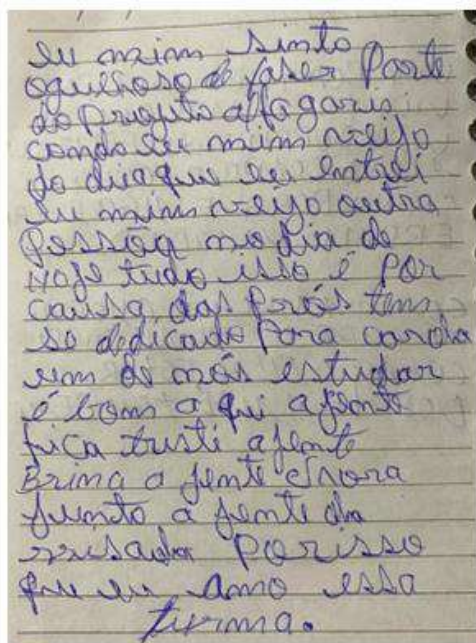 eu mim sinto
ogulhoso de faser Parte
do projeto affagaris
condo eu mim veijo
do diaque eu entrei
eu mim veijo outra
pessõa no dia de
Hoje tudo isso é por
causa das prós tem
se dedicado Para canda
um de nós estudar
é bom a qui a jente
fica tristi a jente
Brima a jente chora
junto a jente da
risada Porisso
que eu amo essa
turma.